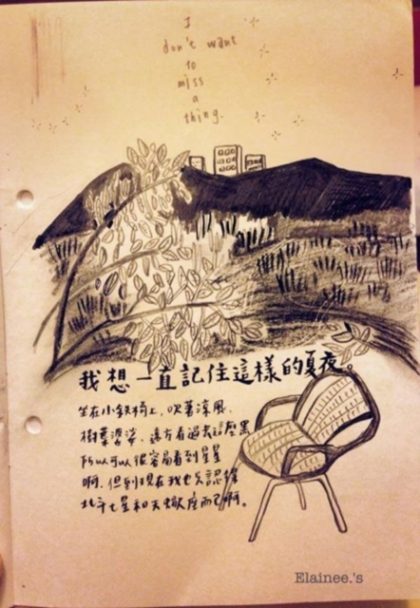 I
don't want
to
miss
a
thing.
我想一直記住這樣的夏夜
坐在小鐵椅上、吹著涼風、
樹葉婆娑、遠方看過去這麼黑
所以可以很容易看到星星
啊、但到現在我也只認得
北斗七星和天蠍座而已啊。
Elainee.'s